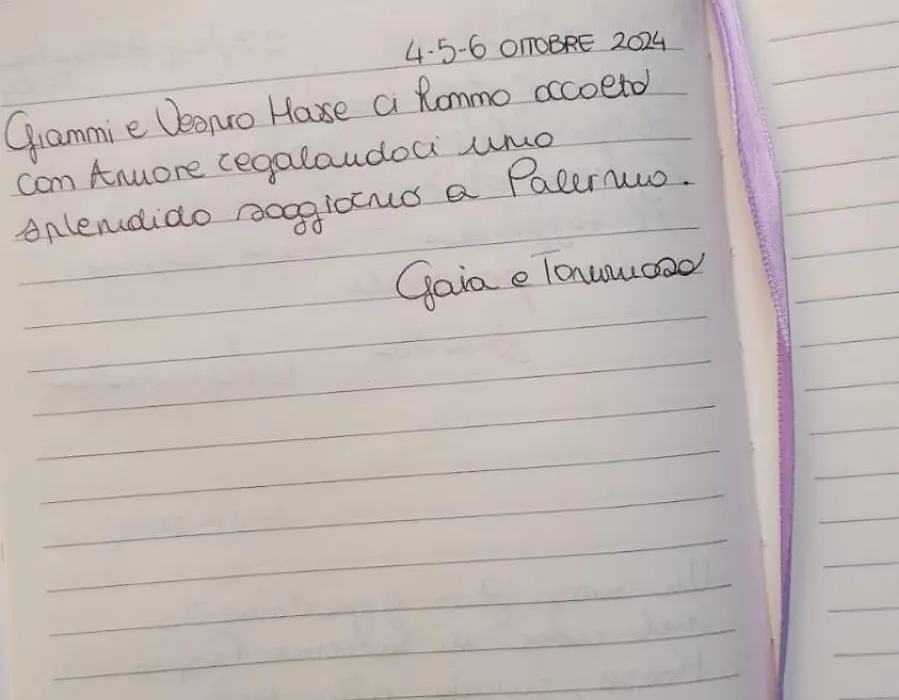 4-5-6 OTTOBRE 2024
Gianni e Vespro Hase ci hanno accolto
con Amore regalandoci uno
splendido soggiorno a Palermo.
Gaia e Tommaso